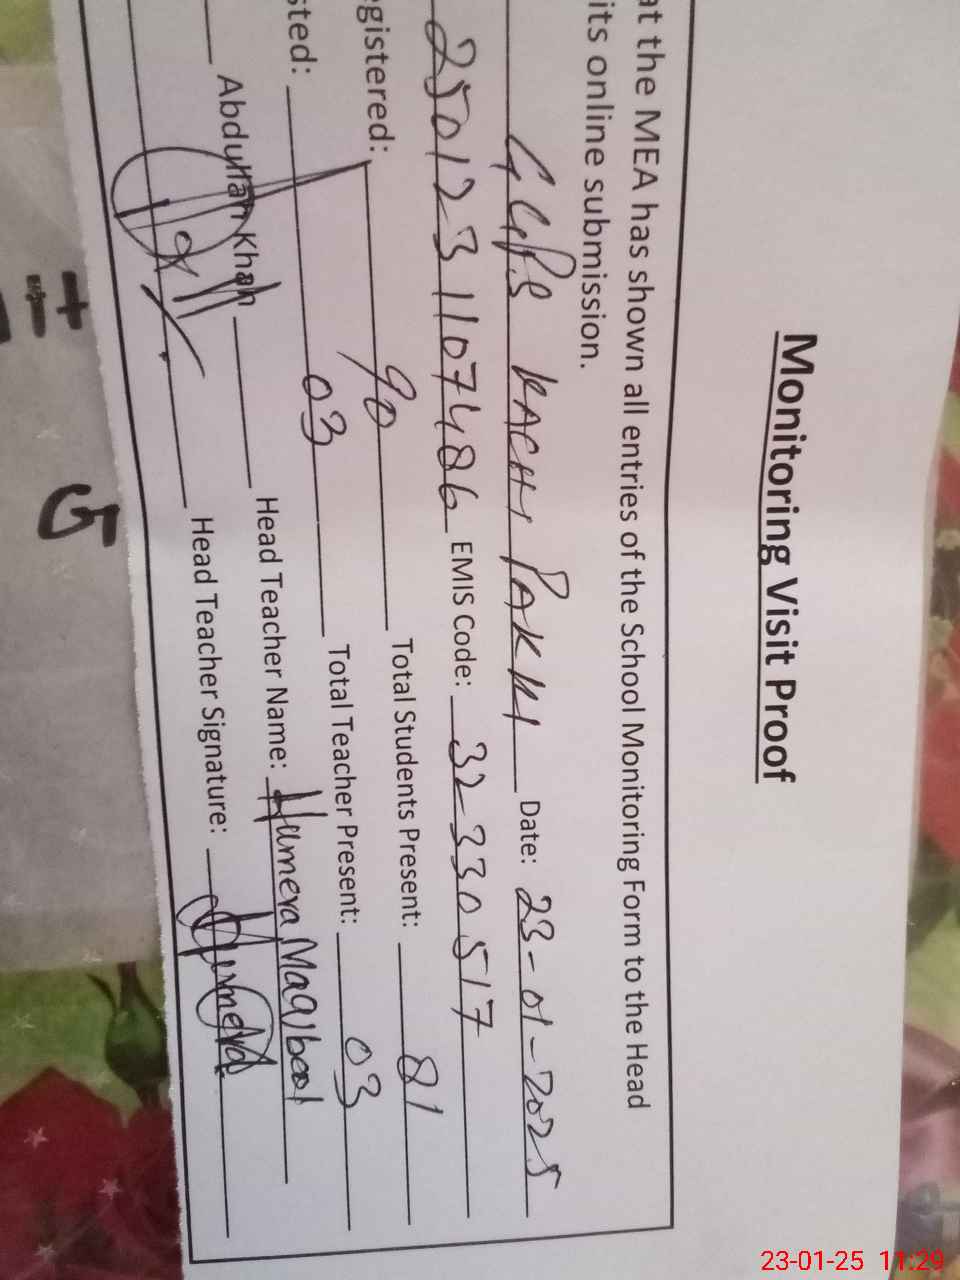 Monitoring Visit Proof
at the MEA has shown all entries of the School Monitoring Form to the Head
its online submission.
GGPS KACHI PAKKI Date: 23-01-2025
250123 1107486 EMIS Code: 32330517
egistered: 90 Total Students Present: 81
sted: 03 Total Teacher Present: 03
Abdullah Khan Head Teacher Name: Humera Maqbool
Head Teacher Signature: Humera
23-01-25 11:29